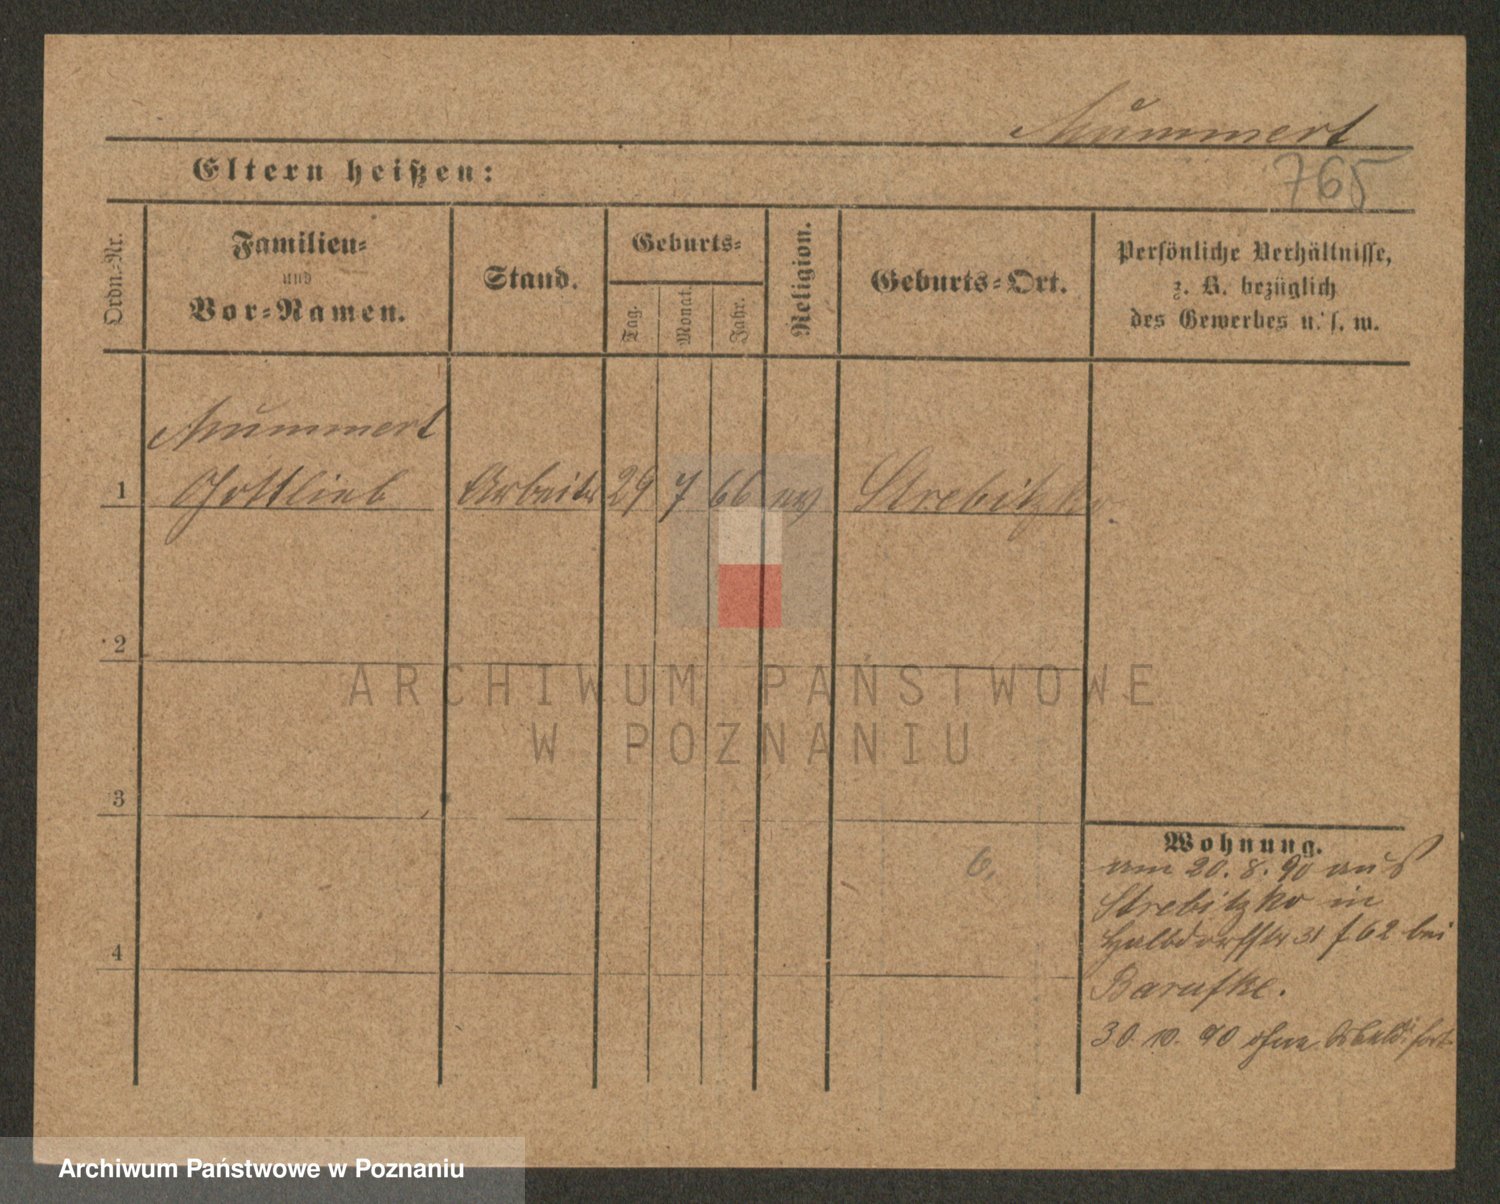 Mummert
765
Eltern heißen:
Ordn.-Nr.
Familien-
und
Vor-Namen.
Stand.
Geburts-
Tag.
Monat.
Jahr.
Religion.
Geburts-Ort.
Persönliche Verhältnisse,
z. B. bezüglich
des Gewerbes u. s. w.
Mummert
1 Gottlieb Arbeiter 29 7 66 ev Strebitzko.
2
3
4
6.
Wohnung.
am 20. 8. 90 aus
Strebitzko in
Halbdorfstr 31 f 62 bei
Barufke.
30. 10. 90 ohne fort
ARCHIWUM PAŃSTWOWE
W POZNANIU
Archiwum Państwowe w Poznaniu